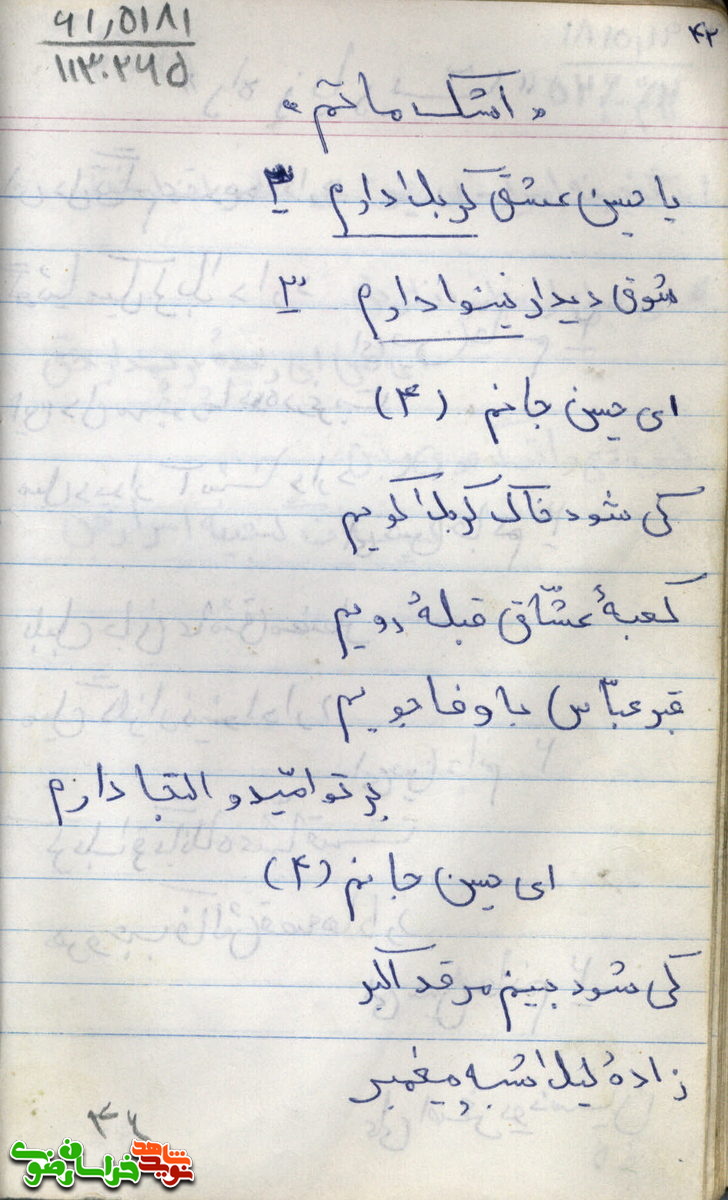 ۴۲
۹۱,۵۱۸۱
۱۱۳۰۲۶۵
« اشک ماتم »
یا حسین عشق کربلا دارم ۳
شوق دیدار نینوا دارم ۳
ای حسین جانم (۴)
کی شود خاک کربلا بویم
کعبهٔ عشّاق قبلهٔ رویم
قبر عبّاس با وفا جویم
بر تو امّید و التجا دارم
ای حسین جانم (۴)
کی شود بینم مرقد اکبر
زادهٔ لیلا شبه پیغمبر
نوید شاهد خراسان رضوی